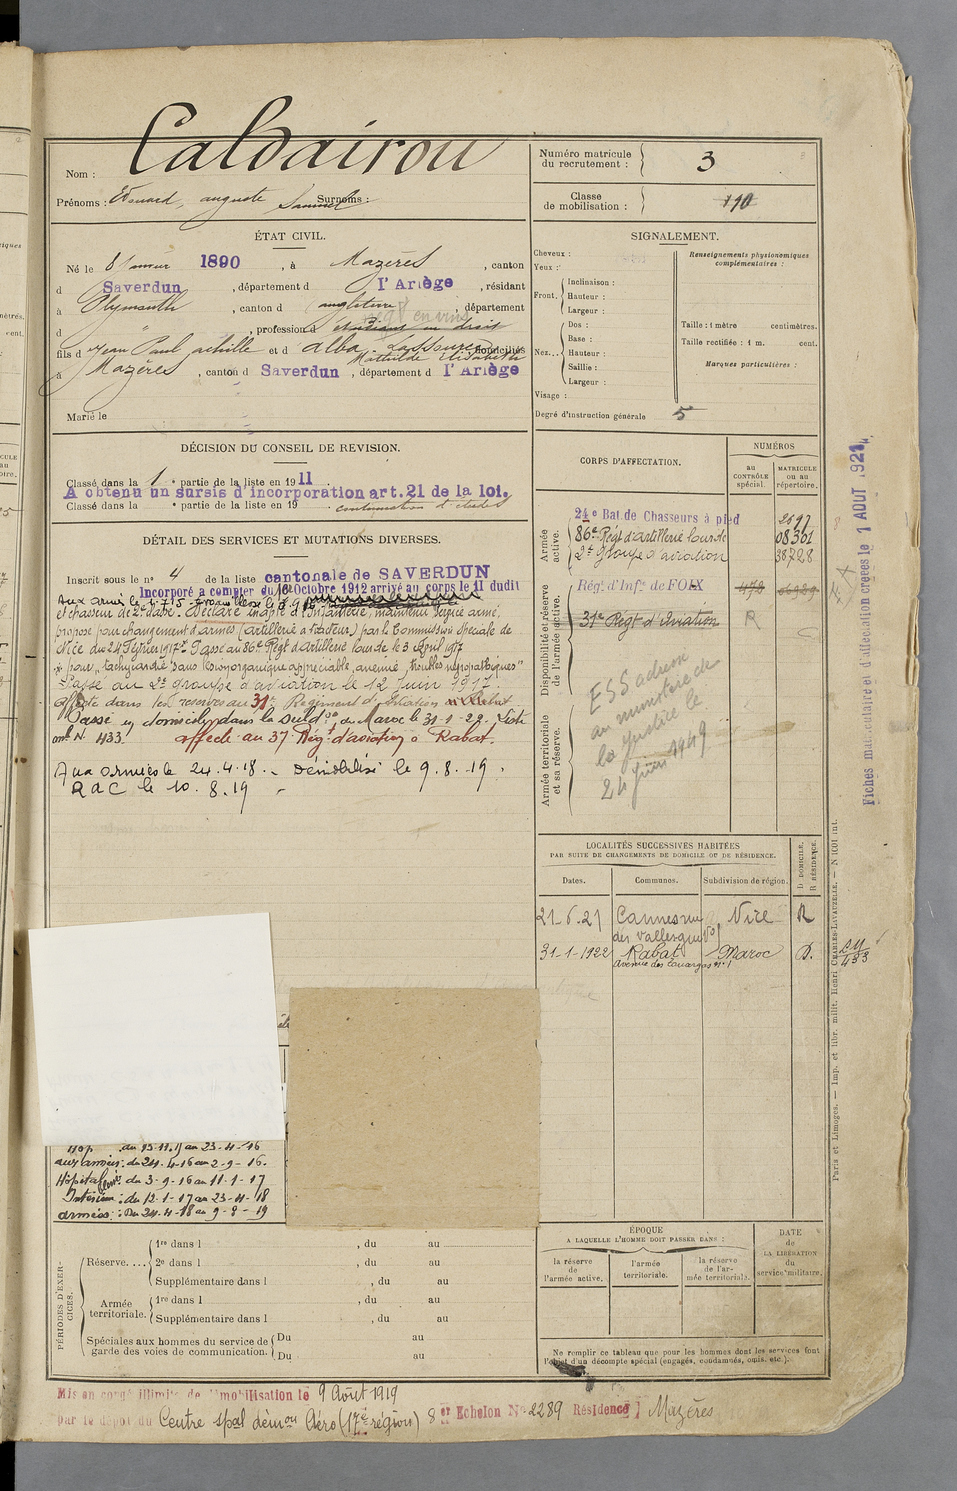 Nom : Caldairou
Prénoms : Edouard, auguste Samuel Surnoms :
Numéro matricule du recrutement : 3
Classe de mobilisation : 1910
ÉTAT CIVIL.
Né le 8 Janvier 1890, à Mazères, canton
d Saverdun, département d l'Ariège, résidant
à Plymouth, canton d angleterre, département
d " , profession d étudiant en droit
négt en vins
fils d Jean Paul achille et d alba Lassourea domiciliés
Mathilde Elisabeth
à Mazères, canton d Saverdun, département d l'Ariège
Marié le
SIGNALEMENT.
Cheveux :
Yeux :
Front. Inclinaison :
Hauteur :
Largeur :
Nez... Dos :
Base :
Hauteur :
Saillie :
Largeur :
Visage :
Renseignements physionomiques complémentaires :
Taille : 1 mètre centimètres.
Taille rectifiée : 1 m. cent.
Marques particulières :
Degré d'instruction générale 5
DÉCISION DU CONSEIL DE REVISION.
Classé dans la 1e partie de la liste en 1911.
A obtenu un sursis d'incorporation art. 21 de la loi.
Classé dans la e partie de la liste en 19 continuation d'études
DÉTAIL DES SERVICES ET MUTATIONS DIVERSES.
Inscrit sous le n° 4 de la liste cantonale de SAVERDUN
Incorporé à compter du 10 Octobre 1912 arrivé au corps le 11 dudit
et chasseur de 2e classe. Déclaré inapte à l'Infanterie, maintenu service armé,
proposé pour changement d'armes (artillerie à tracteur) par la Commission Spéciale de
Nice du 24 Février 1917. Passé au 86e Régt d'artillerie lourde le 3 Avril 1917
* pour "tachycardie sans lésion organique appréciable, anémie, troubles névropathiques"
Passé au 2e groupe d'aviation le 12 Juin 1917
Affecté dans les réserves au 31e Régiment d'Aviation
Passé en domicile dans la Subdon du Maroc le 31-1-22. Liste
ml N° 433. affecté au 37e Régt d'aviation à Rabat.
Aux armées le 24.4.18. - Démobilisé le 9.8.19.
RDC le 10.8.19 -
CORPS D'AFFECTATION.
NUMÉROS
AU CONTRÔLE spécial.
MATRICULE OU AU RÉPERTOIRE.
Armée active.
24e Bat. de Chasseurs à pied 2697
86e Régt d'artillerie lourde 08361
2e groupe d'aviation 38728
Disponibilité et réserve de l'armée active.
Régt d'Infie de FOIX 478
31e Régt d'Aviation R
Armée territoriale et sa réserve.
ESS adressé
au ministère de
la Justice le
24 Juin 1949
Fiches matriculaire et d'affectation créées le 1 AOUT 1921
LOCALITÉS SUCCESSIVES HABITÉES
PAR SUITE DE CHANGEMENTS DE DOMICILE OU DE RÉSIDENCE.
Dates. Communes. Subdivision de région. D DOMICILE. R RÉSIDENCE.
21-6-21 Cannes rue Nice R
31-1-1922 Rabat Maroc D.
LM
433
Hôp. du 15-11-15 au 23-4-16
aux armées : du 24-4-16 au 2-9-16.
Hôpital : du 3-9-16 au 11-1-17
Intérieur : du 12-1-17 au 23-4-18
armées : Du 24-4-18 au 9-8-19
PÉRIODES D'EXERCICES.
Réserve.... 1re dans l , du au
2e dans l , du au
Supplémentaire dans l , du au
Armée territoriale. 1re dans l , du au
Supplémentaire dans l , du au
Spéciales aux hommes du service de garde des voies de communication. Du au
Du au
ÉPOQUE
A LAQUELLE L'HOMME DOIT PASSER DANS :
la réserve de l'armée active.
l'armée territoriale.
la réserve de l'armée territoriale.
DATE de LA LIBÉRATION du service militaire.
Ne remplir ce tableau que pour les hommes dont les services font
l'objet d'un décompte spécial (engagés, condamnés, omis, etc.).
Paris et Limoges. — Imp. et libr. milit. Henri CHARLES-LAVAUZELLE.
Mis en congé illimité de démobilisation le 9 Août 1919
par le dépôt du Centre spal démon Aéro (17e région) 8 er Echelon No 2289 Résidence Mazères